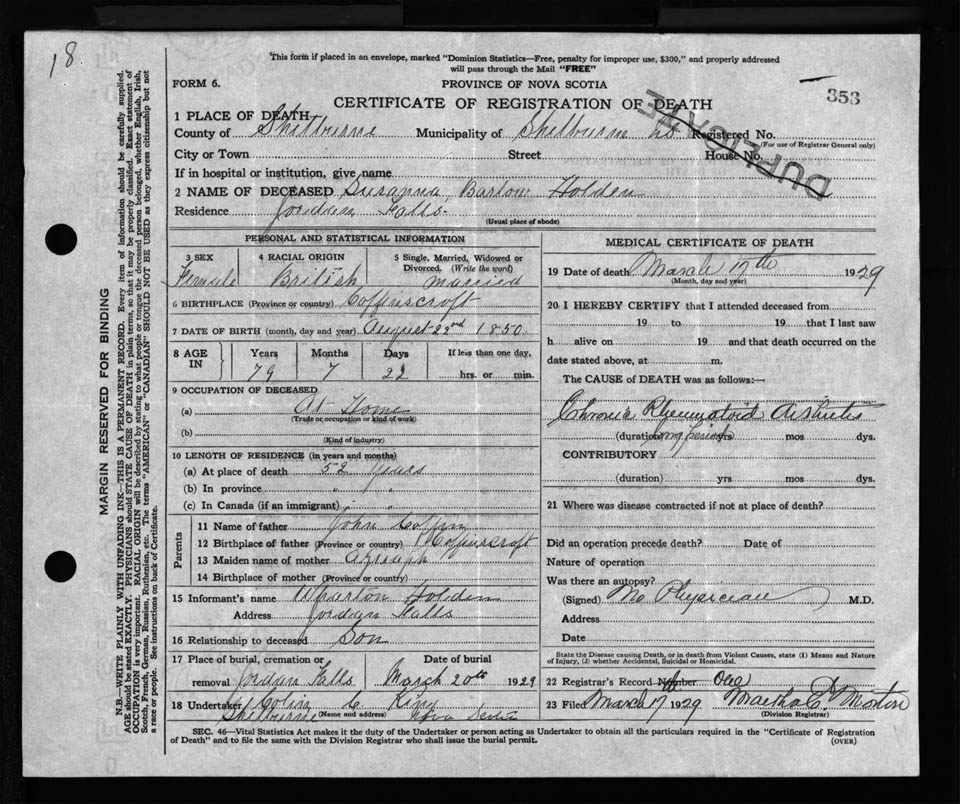 18
This form if placed in an envelope, marked "Dominion Statistics—Free, penalty for improper use, $300," and properly addressed
will pass through the Mail "FREE"
FORM 6.
PROVINCE OF NOVA SCOTIA
353
CERTIFICATE OF REGISTRATION OF DEATH
DUPLICATE
1 PLACE OF DEATH
County of Shelburne Municipality of Shelburne Registered No.
(For use of Registrar General only)
City or Town Street House No.
If in hospital or institution, give name
2 NAME OF DECEASED Susanna Barlow Holden
Residence Jordan Falls
(Usual place of abode)
PERSONAL AND STATISTICAL INFORMATION
3 SEX 4 RACIAL ORIGIN 5 Single, Married, Widowed or Divorced. (Write the word)
Female British Married
6 BIRTHPLACE (Province or country) Coffinscroft
7 DATE OF BIRTH (month, day and year) August 22nd 1850
8 AGE IN Years Months Days If less than one day,
79 7 22 hrs. or min.
9 OCCUPATION OF DECEASED
(a) At Home
(Trade or occupation or kind of work)
(b)
(Kind of industry)
10 LENGTH OF RESIDENCE (in years and months)
(a) At place of death 52 years
(b) In province " "
(c) In Canada (if an immigrant) " "
Parents
11 Name of father John Coffin
12 Birthplace of father (Province or country) Coffinscroft
13 Maiden name of mother
14 Birthplace of mother (Province or country)
15 Informant's name Holden
Address Jordan Falls
16 Relationship to deceased Son
17 Place of burial, cremation or Date of burial
removal Jordan Falls March 20th 1929
18 Undertaker Colin C King
Shelburne (Name and address) Nova Scotia
MEDICAL CERTIFICATE OF DEATH
19 Date of death March 17th 1929
(Month, day and year)
20 I HEREBY CERTIFY that I attended deceased from
19 to 19 that I last saw
h alive on 19 and that death occurred on the
date stated above, at m.
The CAUSE of DEATH was as follows:—
Chronic Rheumatoid Arthritis
(duration) long period yrs mos dys.
CONTRIBUTORY
(duration) yrs mos dys.
21 Where was disease contracted if not at place of death?
Did an operation precede death? Date of
Nature of operation
Was there an autopsy?
(Signed) No Physician M.D.
Address
Date
State the Disease causing Death, or in death from Violent Causes, state (1) Means and Nature
of Injury, (2) whether Accidental, Suicidal or Homicidal.
22 Registrar's Record Number
23 Filed March 17 1929 Martha E Morton
(Division Registrar)
SEC. 46—Vital Statistics Act makes it the duty of the Undertaker or person acting as Undertaker to obtain all the particulars required in the "Certificate of Registration
of Death" and to file the same with the Division Registrar who shall issue the burial permit.
(OVER)
MARGIN RESERVED FOR BINDING
N.B.—WRITE PLAINLY WITH UNFADING INK—THIS IS A PERMANENT RECORD. Every item of information should be carefully supplied.
AGE should be stated EXACTLY. PHYSICIANS should STATE CAUSE OF DEATH in plain terms, so that it may be properly classified. Exact statement of
OCCUPATION is very important. RACIAL ORIGIN will be described by stating to what people or tongue the deceased person belonged, whether English, Irish,
Scotch, French, German, Russian, Ruthenian, etc. The terms "AMERICAN" or "CANADIAN" SHOULD NOT BE USED as they express citizenship but not
a race or people. See instructions on back of Certificate.